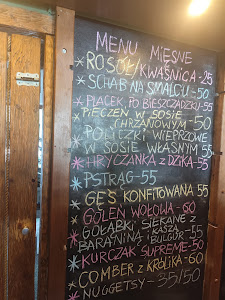 MENU MIĘSNE
ROSÓŁ/KWAŚNICA-25
*SCHAB NA SMALCU-50
*PLACEK PO BIESZCZADZKU-55
PIECZEŃ W SOSIE
CHRZANOWYM-50
*POLICZKI WIEPRZOWE
W SOSIE WŁASNYM 55
*HRYCZANKA Z DZIKA-55
*PSTRĄG-55
*GĘŚ KONFITOWANA 55
*GOLEŃ WOŁOWA-60
*GOŁĄBKI SIEKANE Z
BARANINĄ I KASZĄ
BULGUR-55
*KURCZAK SUPREME-50
*COMBER Z KRÓLIKA-60
*NUGGETSY-35/50